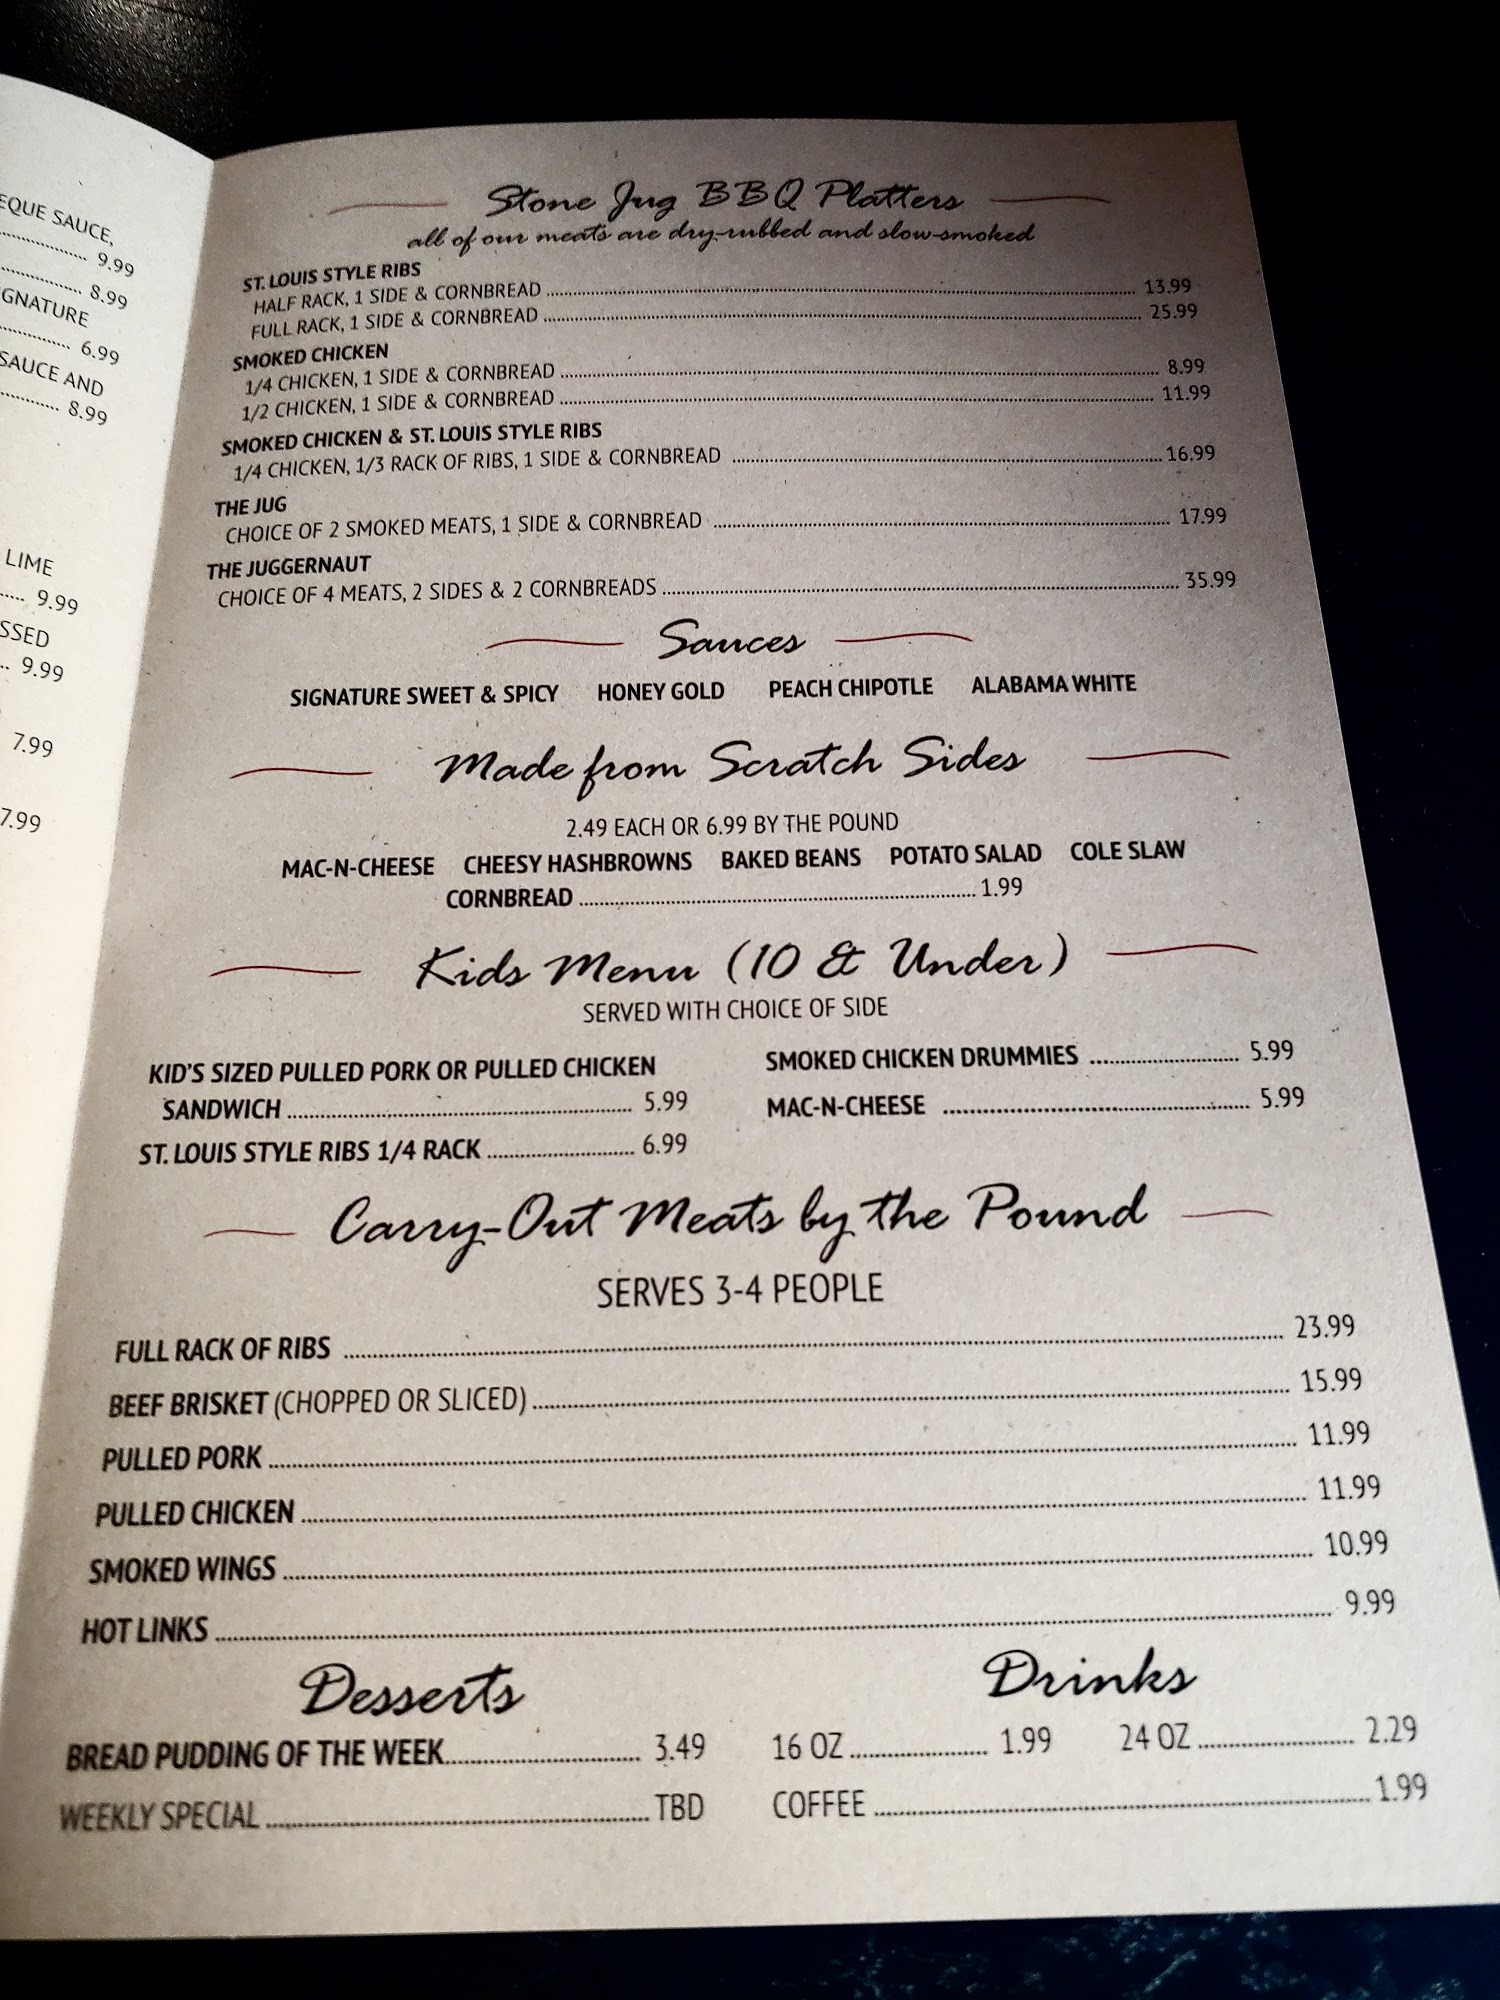 EQUE SAUCE,
9.99
8.99
GNATURE
6.99
SAUCE AND
8.99
LIME
9.99
SSED
9.99
7.99
7.99
Stone Jug BBQ Platters
all of our meats are dry-rubbed and slow-smoked
ST. LOUIS STYLE RIBS
HALF RACK, 1 SIDE & CORNBREAD 13.99
FULL RACK, 1 SIDE & CORNBREAD 25.99
SMOKED CHICKEN
1/4 CHICKEN, 1 SIDE & CORNBREAD 8.99
1/2 CHICKEN, 1 SIDE & CORNBREAD 11.99
SMOKED CHICKEN & ST. LOUIS STYLE RIBS
1/4 CHICKEN, 1/3 RACK OF RIBS, 1 SIDE & CORNBREAD 16.99
THE JUG
CHOICE OF 2 SMOKED MEATS, 1 SIDE & CORNBREAD 17.99
THE JUGGERNAUT
CHOICE OF 4 MEATS, 2 SIDES & 2 CORNBREADS 35.99
Sauces
SIGNATURE SWEET & SPICY HONEY GOLD PEACH CHIPOTLE ALABAMA WHITE
Made from Scratch Sides
2.49 EACH OR 6.99 BY THE POUND
MAC-N-CHEESE CHEESY HASHBROWNS BAKED BEANS POTATO SALAD COLE SLAW
CORNBREAD 1.99
Kids Menu (10 & Under)
SERVED WITH CHOICE OF SIDE
KID'S SIZED PULLED PORK OR PULLED CHICKEN
SANDWICH 5.99
ST. LOUIS STYLE RIBS 1/4 RACK 6.99
SMOKED CHICKEN DRUMMIES 5.99
MAC-N-CHEESE 5.99
Carry-Out Meats by the Pound
SERVES 3-4 PEOPLE
FULL RACK OF RIBS 23.99
BEEF BRISKET (CHOPPED OR SLICED) 15.99
PULLED PORK 11.99
PULLED CHICKEN 11.99
SMOKED WINGS 10.99
HOT LINKS 9.99
Desserts
BREAD PUDDING OF THE WEEK 3.49
WEEKLY SPECIAL TBD
Drinks
16 OZ 1.99 24 OZ 2.29
COFFEE 1.99